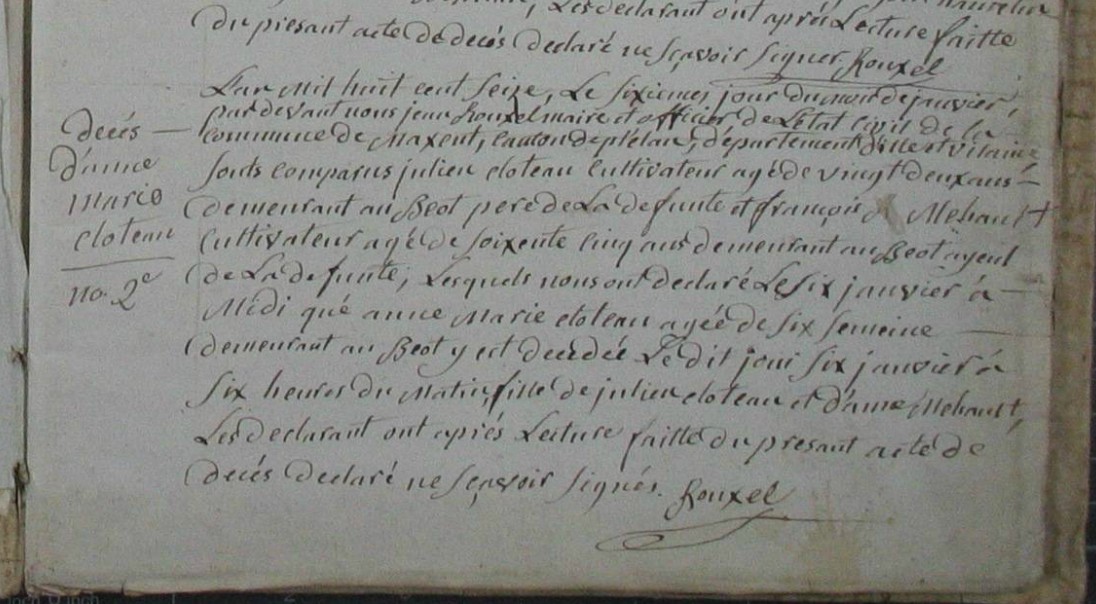 Les declarant ont aprés Lecture faitte
du presant acte de decés declaré ne sçavoir signer. Rouxel
L'an mil huit cent seize, Le sixieme jour du mois de janvier,
par devant nous jean Rouxel maire et officier de L'état civil de la
commune de Maxent, canton de plélan, département d'ille et vilaine
sonts comparus julien cloteau cultivateur agé de vingt deux ans
demeurant au Beot pere de La defunte et françois Mehault
cultivateur agé de soixente cinq ans demeurant au Beot ayeul
de La defunte, Lesquels nous ont declaré Le six janvier à
Midi qué anne Marie cloteau agée de six semeine
demeurant au Beot y est decedée Le dit jour six janvier à
six heures du Matin, fille de julien cloteau et d'anne Mehault,
Les declarant ont aprés Lecture faitte du presant acte de
decés declaré ne sçavoir signés. Rouxel
decés
d'anne
marie
cloteau
no. 2e